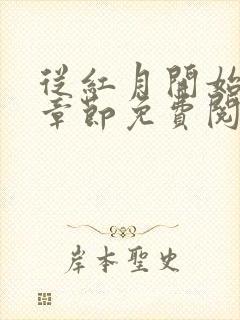 從紅月開始
章節免費閱
岸本聖史